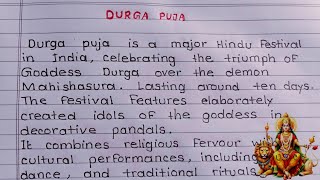 DURGA PUJA
Durga puja is a major Hindu Festival
in India, celebrating the triumph of
Goddess Durga over the demon
Mahishasura. Lasting around ten days.
The Festival Features elaborately
created idols of the goddess in
decorative pandals.
It combines religious Fervour
cultural performances, including
dance, and traditional rituals